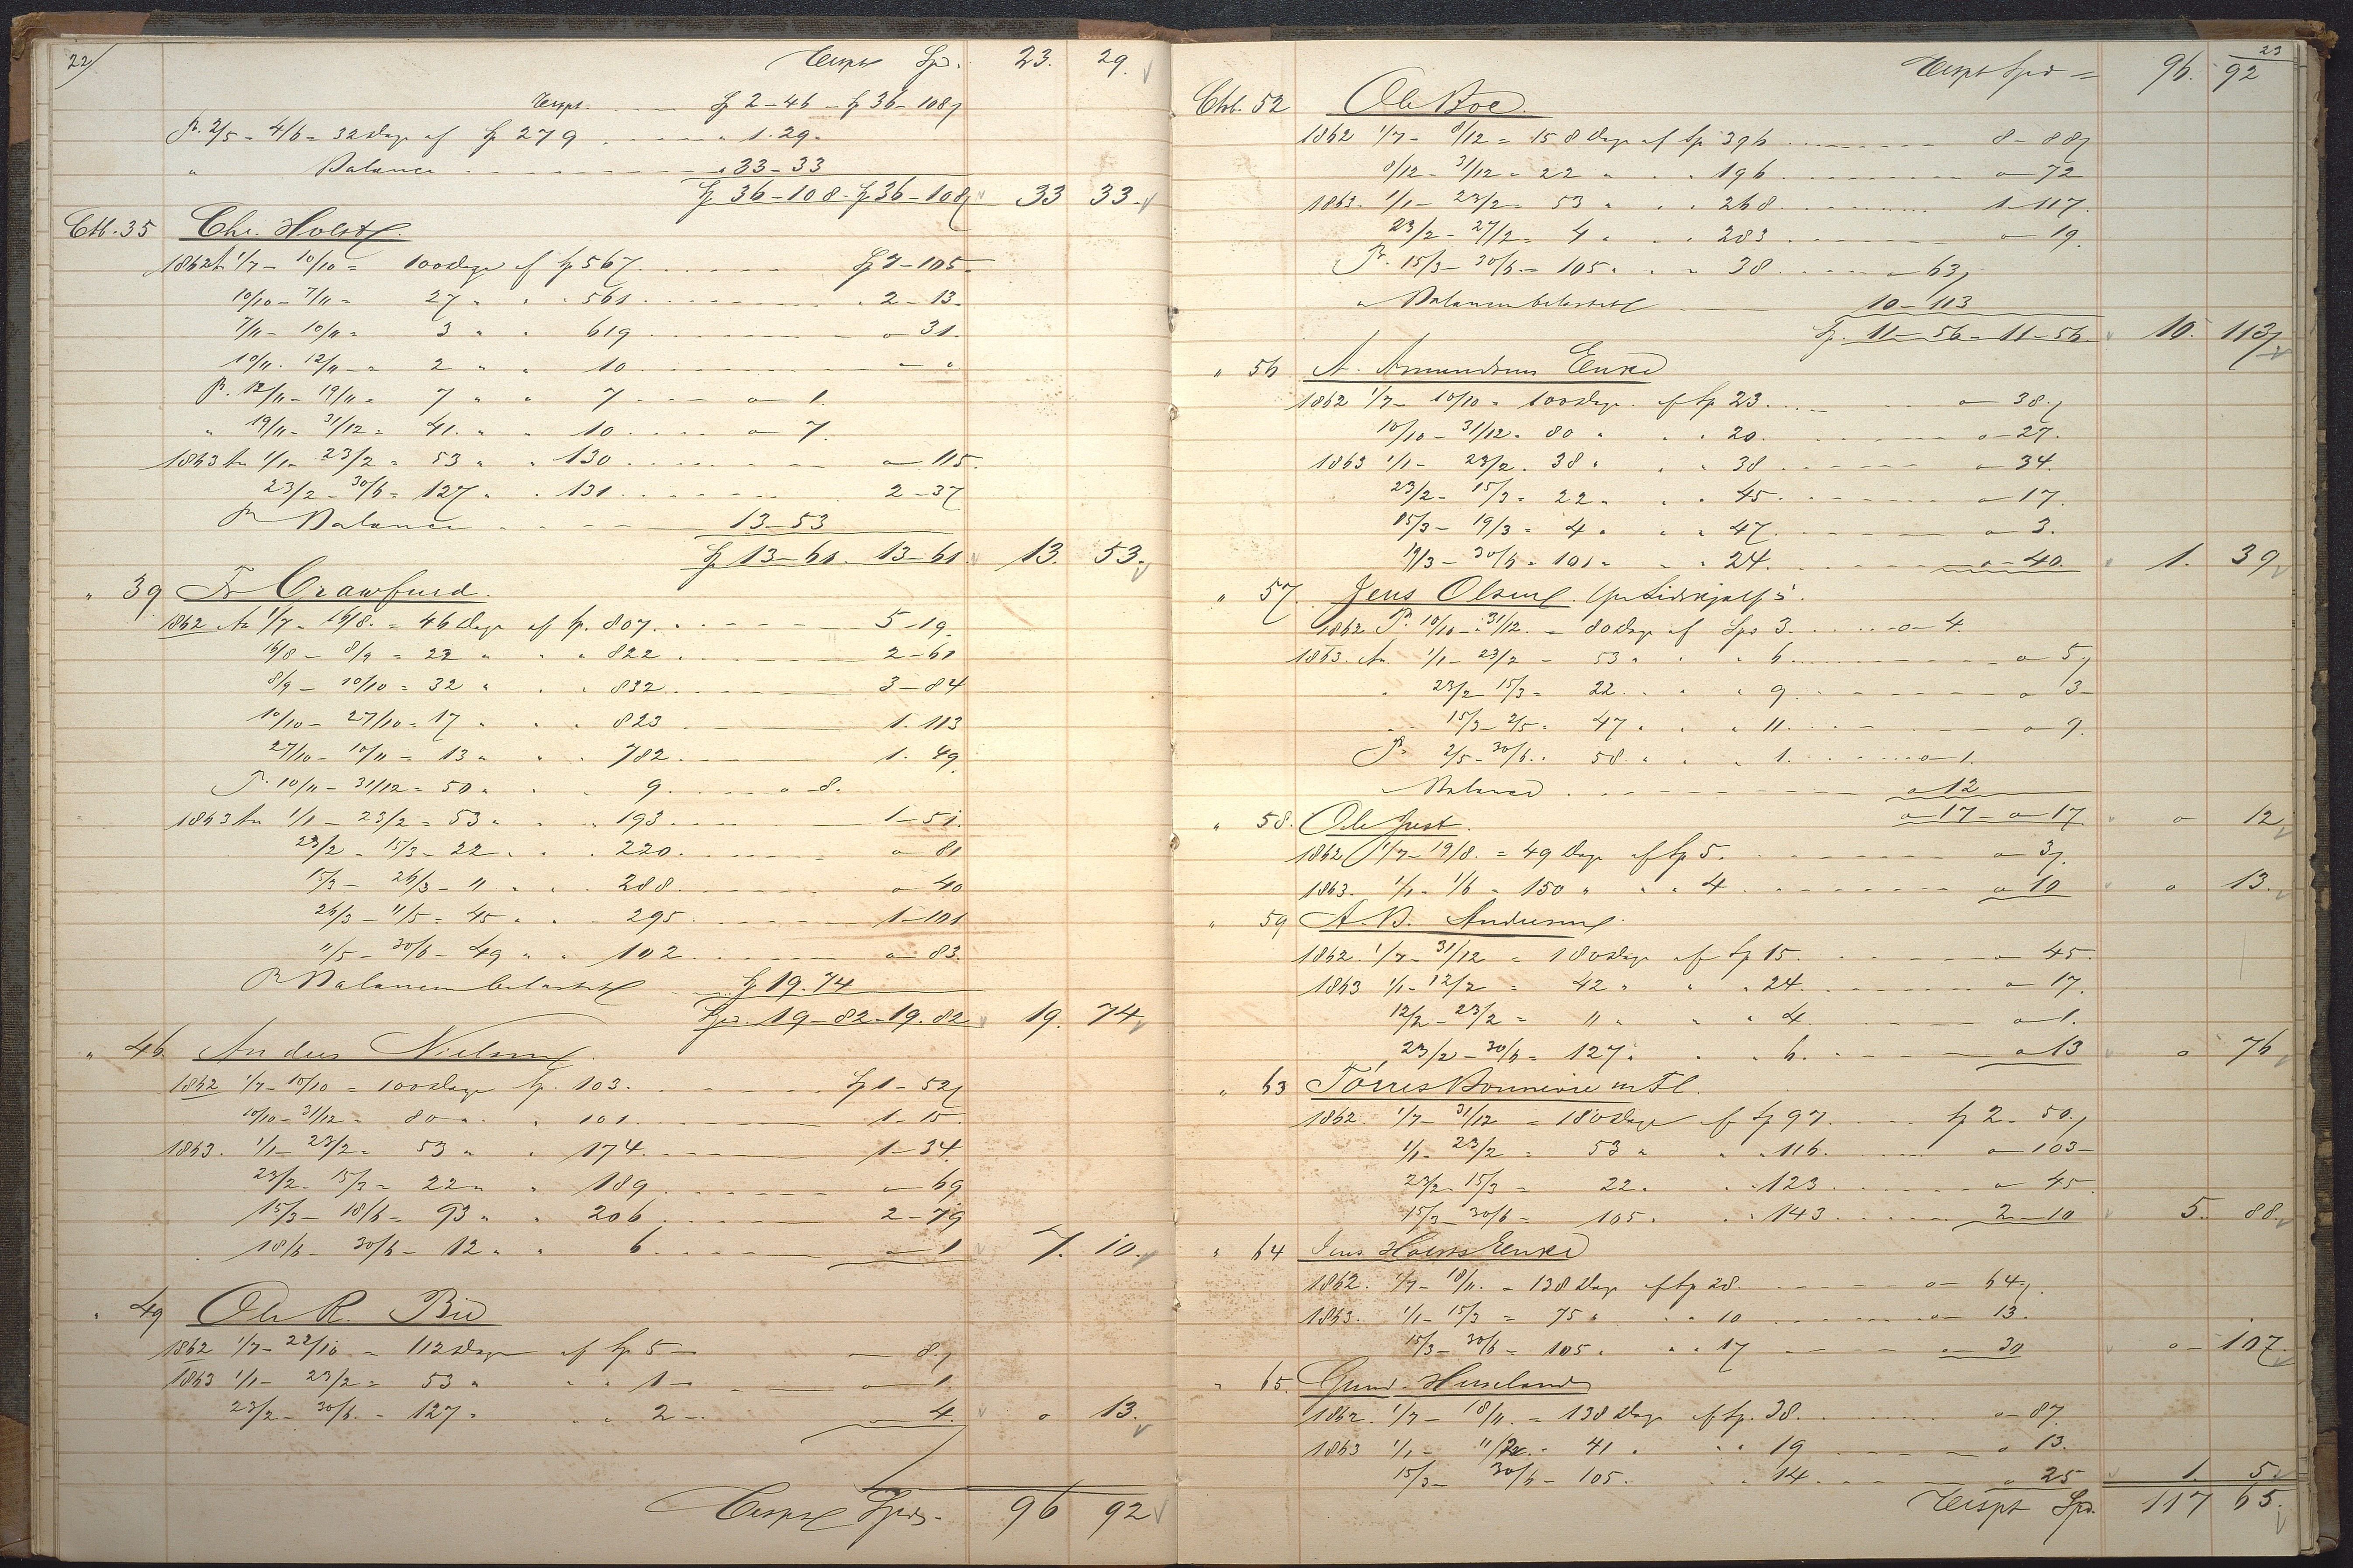 22/
Transpt Spd. 23. 29.
Transpt. Sp 2-46 - Sp 36-108
Pr. 2/5 - 4/6 = 32 Dage af Sp 279 " 1.29.
" Balance " 33-33
Sp 36-108 - Sp 36-108 33 33.
Ctb. 35 Chr. Holst
1862 An 1/7 - 10/10 = 100 Dage af Sp 567 Sp 7-105-
10/10 - 7/11 = 27 " " 561 " 2-13.
7/11 - 10/11 = 3 " " 619 o 31.
10/11 - 12/11 = 2 " " 10 - "
Pr. 12/11 - 19/11 = 7 " " 7 o 1.
" 19/11 - 31/12 = 41. " " 10 o 7.
1863 An 1/1 - 23/2 = 53 " " 130 o 115.
23/2 - 30/6 = 127 " " 131 2-37
Pr Balance 13-53
Sp 13-61. 13-61. 13. 53.
" 39 Fr Crawfurd.
1862 An 1/7 - 16/8. = 46 Dage af Sp. 807. 5-19.
16/8 - 8/9 = 22 " " 822 2-61
8/9 - 10/10 = 32 " " 832 3-84
10/10 - 27/10 = 17 " " 823 1-113
27/10 - 10/11 = 13 " " 782 1.49.
Pr. 10/11 - 31/12 = 50 " " 9 o-8.
1863 An 1/1 - 23/2 = 53 " " 193 1-51.
23/2 - 15/3 - 22 " " 220 o 81
15/3 - 26/3 - 11 " " 288 o 40
26/3 - 11/5 = 45 " " 295 1-101
11/5 - 30/6 - 49 " " 102 o 83.
Pr Balancen belastet Sp 19.74
Spd. 19-82-19.82 19. 74
" 46 Anders Nielsen.
1862 1/7 - 10/10 = 100 Dage Sp. 103. Sp 1-52
10/10 - 31/12 = 80 " " 101 1-15
1863. 1/1 - 23/2 = 53 " " 174 1-34.
23/2 - 15/3 = 22 " " 189 o-69
15/3 - 18/6 = 93 " " 206 2-79
18/6 - 30/6 - 12 " " 6 o-1 7. 10.
" 49 Ole R. Bie
1862 1/7 - 22/10 = 112 Dage af Sp 5- 8.
1863 1/1 - 23/2 = 53 " " 1- o 1.
23/2 - 30/6. = 127 " " 2- o 4. o 13.
Transpt Spd. 96 92
23
Transpt Spd = 96. 92
Ctb. 52 Ole Boe.
1862 1/7 - 8/12 = 158 Dage af Sp 396 8-88
8/12 - 31/12 = 22 " " 196 o-72
1863. 1/1 - 23/2 = 53 " " 268 1-117.
23/2 - 27/2 = 4 " " 283 o-19.
Pr. 15/3 - 30/6 = 105 " " 38 o-63
" Balancen belastet 10-113
Sp. 11-56 - 11-56. 10. 113
" 56 A. Amundsens Enke
1862 1/7 - 10/10 = 100 Dage af Sp 23. o-38.
10/10 - 31/12 = 80 " " 20. o-27.
1863 1/1 - 23/2. 38 " " 38 o-34.
23/2 - 15/3 = 22 " " 45 o-17.
15/3 - 19/3 = 4 " " 47 o-3.
19/3 - 30/6 = 101 " " 24. o-40. 1. 39
" 57. Jens Olsen.
1862 Pr. 10/10 - 31/12. = 80 Dage af Spd 3. o-4.
1863. An. 1/1 - 23/2 - 53 " " 6 o 5
" 23/2 - 15/3 = 22 " " 9 o 3-
" 15/3 - 2/5 = 47 " " 11. o-9.
Pr 2/5 - 30/6. = 58. " " 1. o-1.
Balance o 12
o-17 - o-17. o 12
" 58. Ole Just.
1862 1/7 - 19/8. = 49 Dage af Sp 5. o 3
1863. 1/1 - 1/6 = 150 " " 4 o 10 o 13.
" 59 A. B. Andersen.
1862. 1/7 - 31/12 = 180 Dage af Sp 15. o-45.
1863 1/1 - 12/2 = 42 " " 24. o-17.
12/2 - 23/2 = 11 " " 4. o-1.
23/2 - 30/6 = 127 " " 6. o 13 o 76
" 63 Tørres Bonnevie m Fl.
1862. 1/7 - 31/12 = 180 Dage af Sp 97. Sp 2-50.
1/1 - 23/2 = 53 " " 116. o-103-
23/2 - 15/3 = 22. " " 123 o-45
15/3 - 30/6 = 105. " " 143 2-10 5. 88.
" 64 Jens Holms Enke
1862. 1/7 - 18/11. = 138 Dage af Sp 28. o-64.
1863. 1/1 - 15/3 = 75 " " 10 o-13.
15/3 - 30/6 = 105. " " 17 o-30 o-107.
" 65. Gund. Huseland
1862. 1/7 - 18/11. = 138 Dage af Sp. 38. o-87.
1863 1/1 - 11/2 = 41 " " 19 o 13.
15/3 - 30/6 - 105. " 14 o 25 1. 5
Transpt Spd. 117 65.